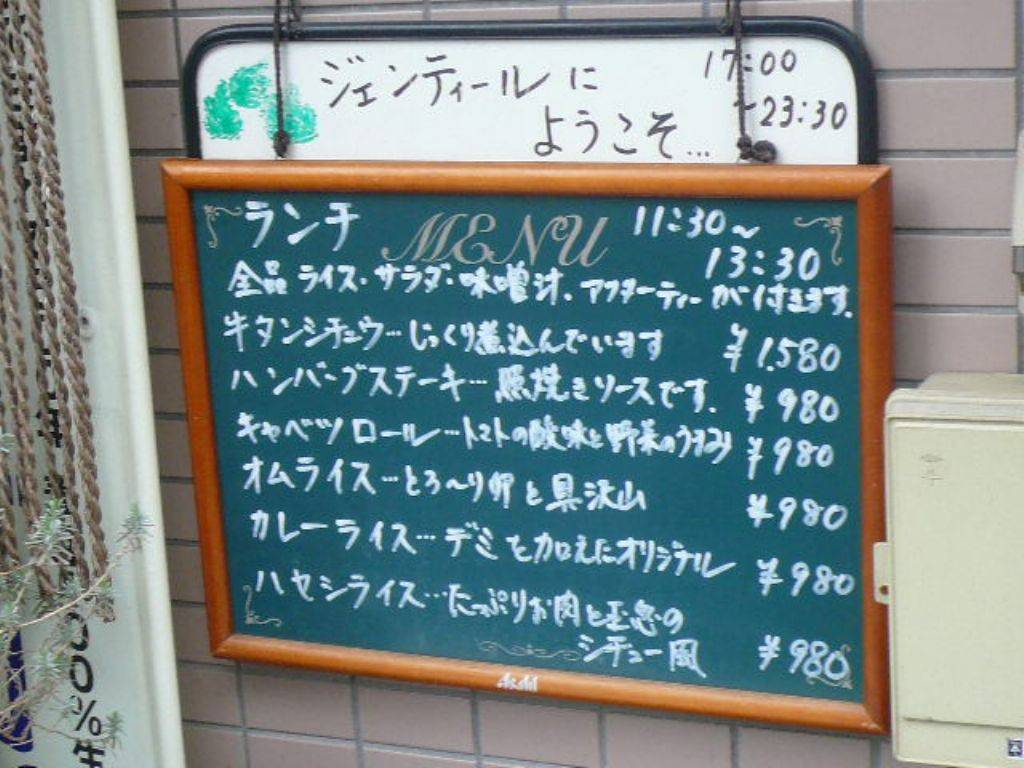 ジェンティールに
ようこそ...
17:00
~23:30
ランチ
MENU
11:30~
13:30
全品 ライス・サラダ・味噌汁、アフターティーが付きます。
牛タンシチュウ…じっくり煮込んでいます ¥1.580
ハンバーグステーキ…照焼きソースです. ¥980
キャベツロール…トマトの酸味と野菜のうまみ ¥980
オムライス…とろ〜り卵と具沢山 ¥980
カレーライス…デミを加えたオリジナル ¥980
ハヤシライス…たっぷりお肉と玉葱の
シチュー風 ¥980
Asahi
00%生